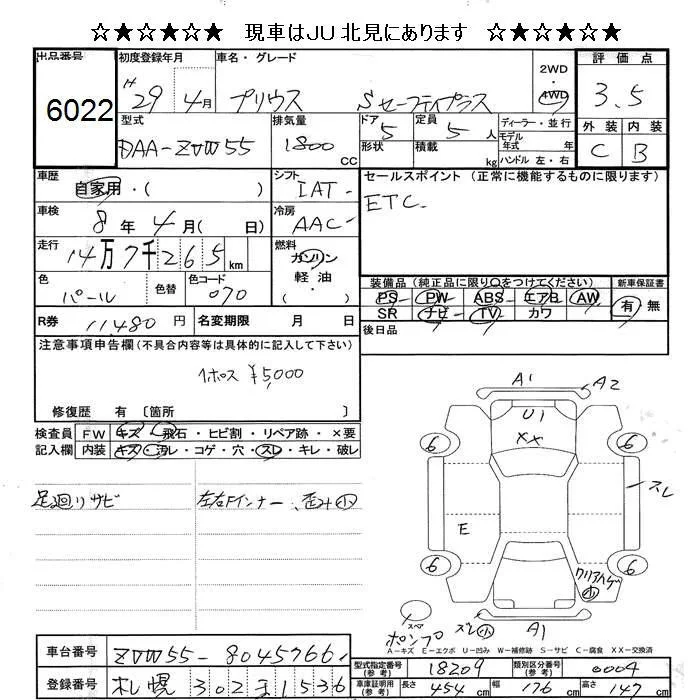 ☆★☆★☆★☆ 現車はJU北見にあります ☆★☆★☆★☆
出品番号 初度登録年月 車名・グレード 2WD・4WD 評価点
6022 H29年4月 プリウス Sセーフティプラス 3.5
型式 排気量 ドア 5 定員 5人 ディーラー・並行 外装 内装
DAA-ZVW55 1800cc 形状 積載 kg モデル年式 年 C B
ハンドル 左・右
車歴 自家用・( ) シフト IAT セールスポイント(正常に機能するものに限ります)
車検 8年4月( 日) 冷房 AAC ETC
走行 14万7千265km 燃料 ガソリン 軽油・( )
色 パール 色替 色コード 070 装備品(純正品に限り○をつけてください) 新車保証書
PS PW ABS エアB AW 有 無
SR ナビ TV カワ
R券 11,480円 名変期限 月 日 後日品
注意事項申告欄(不具合内容等は具体的に記入して下さい)
¥5,000
修復歴 有〔箇所 〕
検査員 FW キズ・飛石・ヒビ割・リペア跡・×要
記入欄 内装 キズ・汚レ・コゲ・穴・スレ・キレ・破レ
足廻リサビ 左右Fインナー、歪み小
A1 A2
U1
XX
6 6
スレ
E
6 6
クリアハゲ 小
スペア
ポンプ スレ小 A1
A-キズ E-エクボ U-凹み W-補修跡 S-サビ C-腐食 XX-交換済
車台番号 ZVW55-8045766 型式指定番号(参考) 18209 類別区分番号(参考) 0004
登録番号 札幌 302 ま 1536 車庫証明用(参考) 長さ 454cm 幅 176cm 高さ 147cm